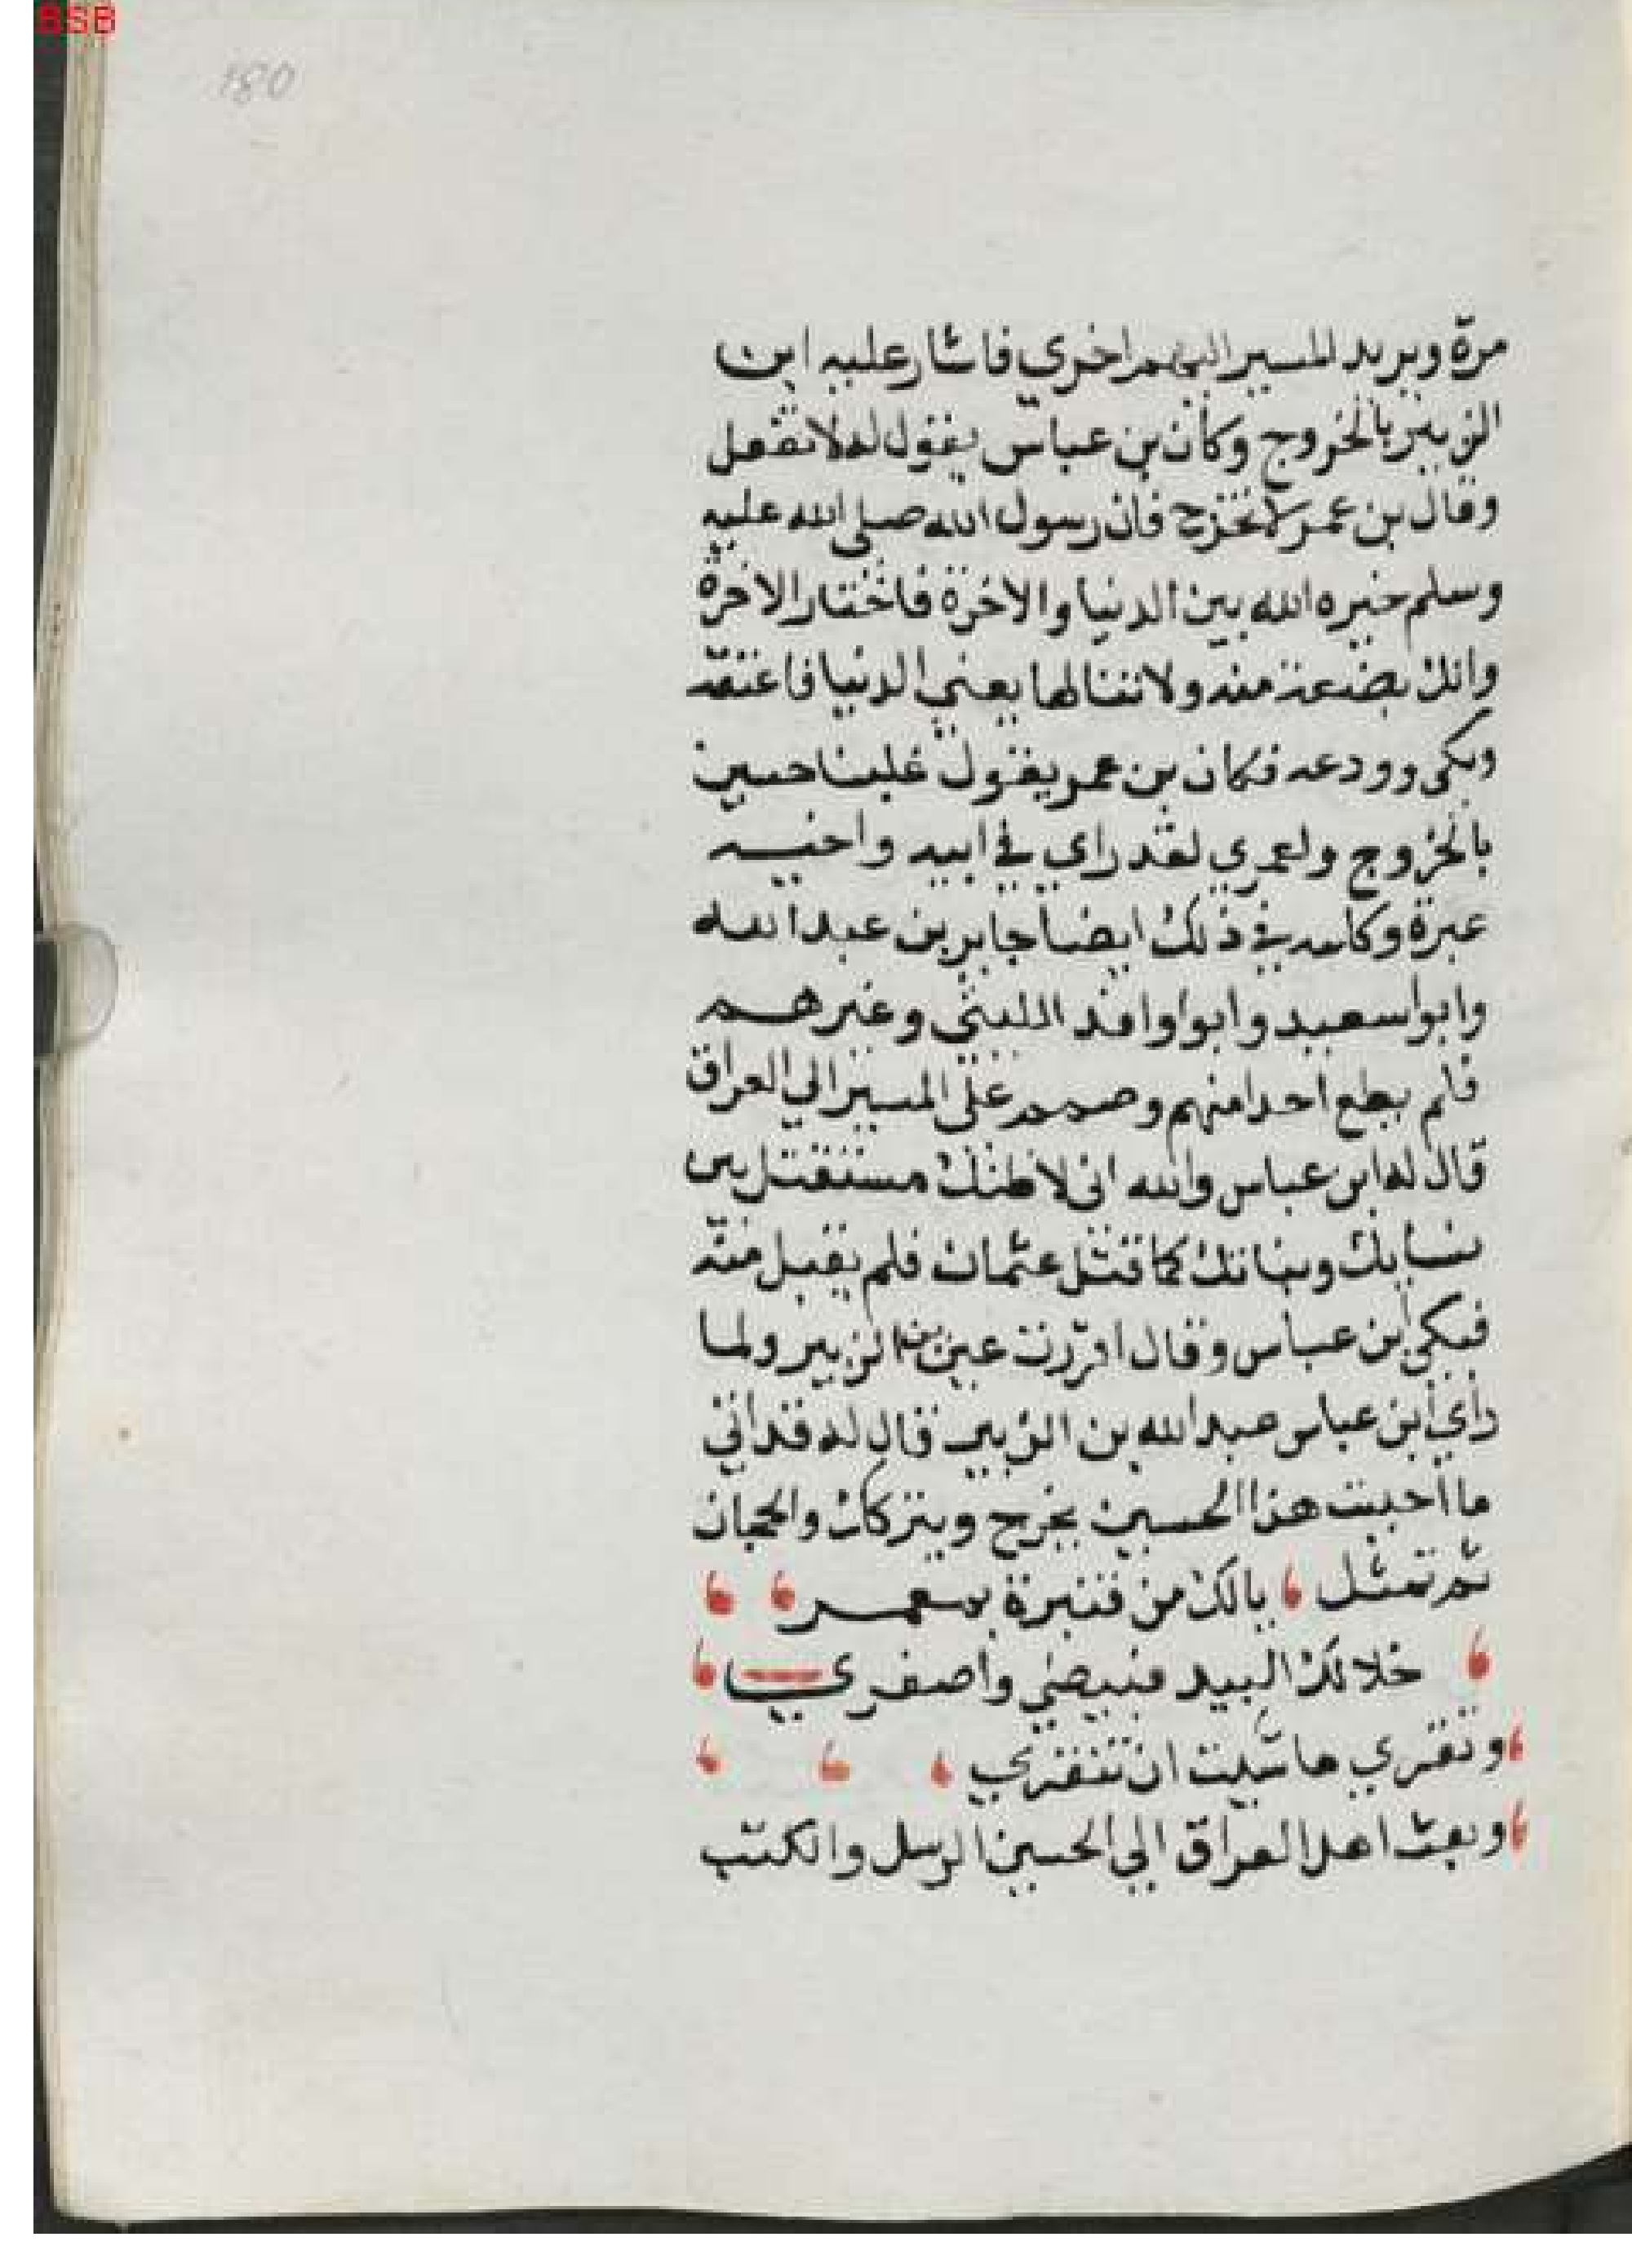 BSB
180
مرة ويريد المسير اليهم اخرى فاشار عليه ابن
الزبير بالخروج وكان بن عباس يقول له لا تفعل
وقال بن عمر لا تخرج فان رسول الله صلى الله عليه
وسلم خيره الله بين الدنيا والاخرة فاختار الاخرة
وانك بضعة منه ولا تنالها يعني الدنيا فاعتنقه
وبكى وودعه فكان بن عمر يقول غلبنا حسين
بالخروج ولعمري لقد راي في ابيه واخيه
عبرة وكلمه في ذلك ايضا جابر بن عبد الله
وابوا سعيد وابوا واقد الليثي وغيرهم
فلم يطع احدا منهم وصمم على المسير الي العراق
قال له ابن عباس والله اني لاظنك ستقتل بين
نسايك وبناتك كما قتل عثمان فلم يقبل منه
فبكى ابن عباس وقال اقررت عين بن الزبير ولما
راي ابن عباس عبد الله بن الزبير قال له قد اتي
ما احببت هذا الحسين يخرج ويتركك والحجاز
ثم تمثل يالك من قنبرة بمعمر
خلا لك البيد فبيضي واصفري
ونقري ما شيت ان تنقري
وبعث اهل العراق الي الحسين الرسل والكتب